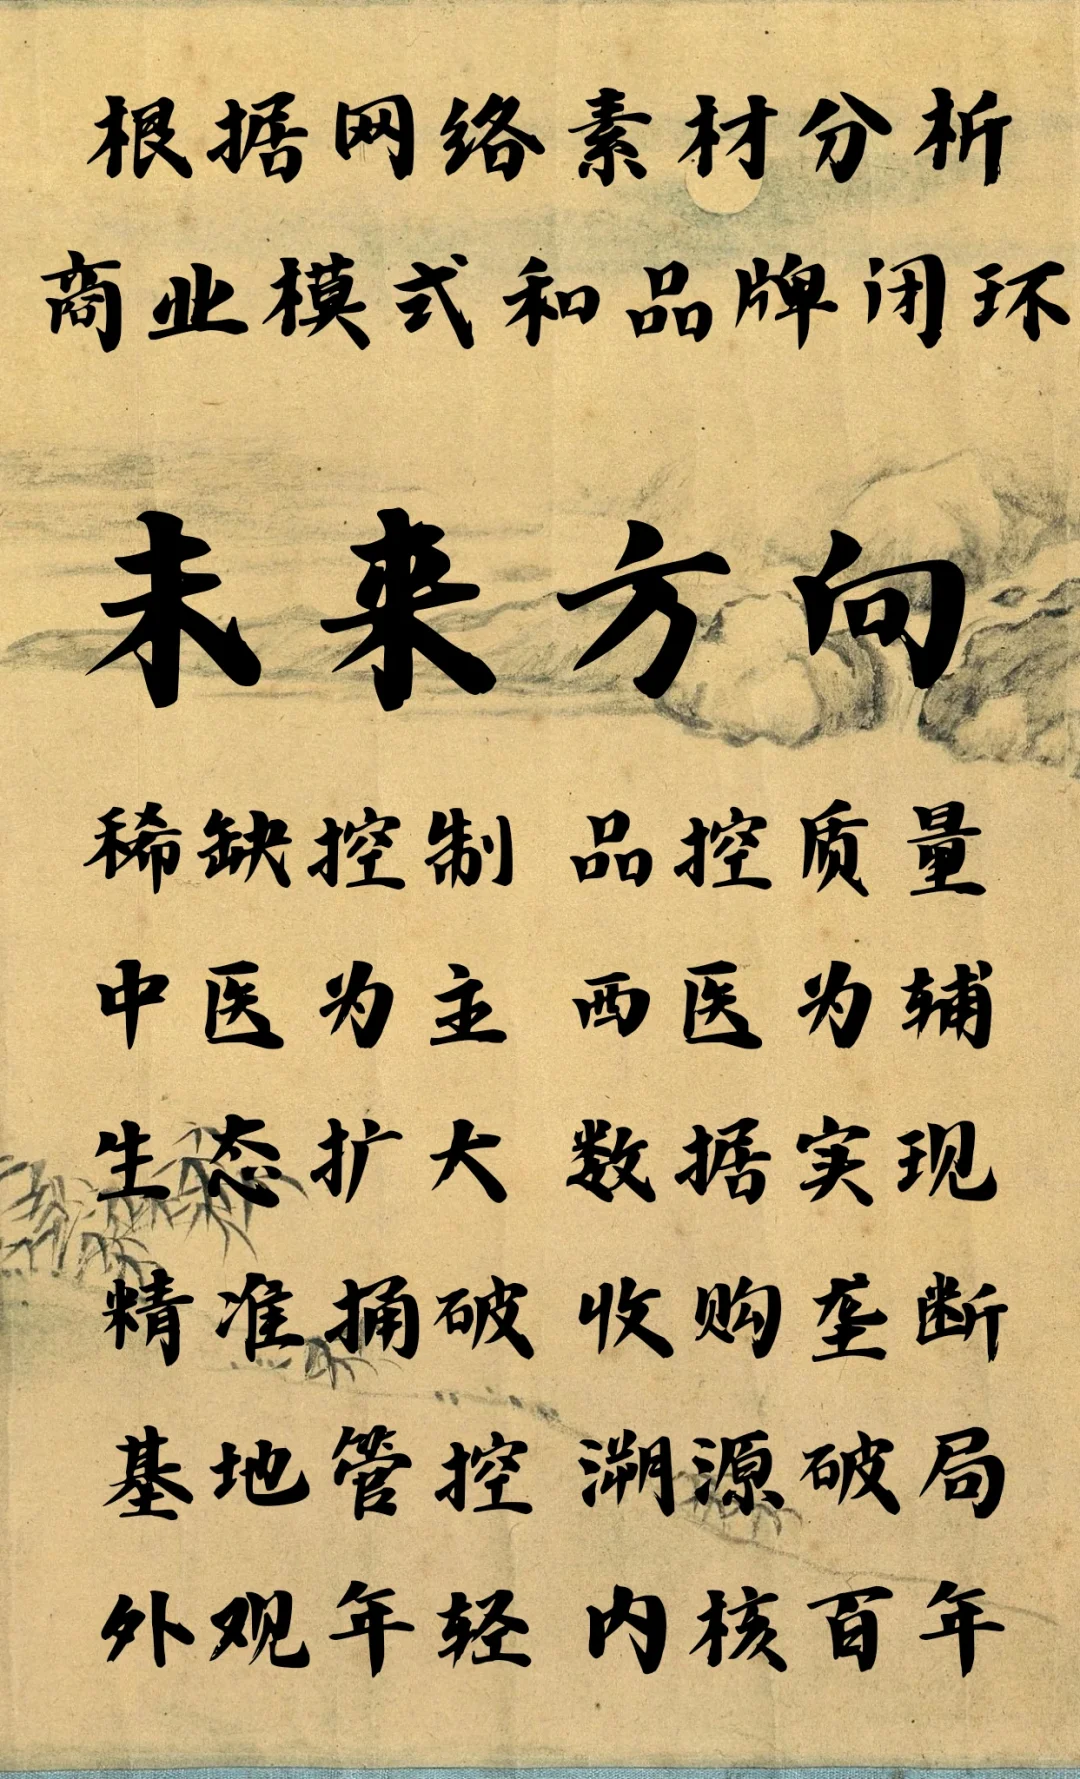 根据网络素材分析
商业模式和品牌闭环
未来方向
稀缺控制 品控质量
中医为主 西医为辅
生态扩大 数据实现
精准捅破 收购垄断
基地管控 溯源破局
外观年轻 内核百年